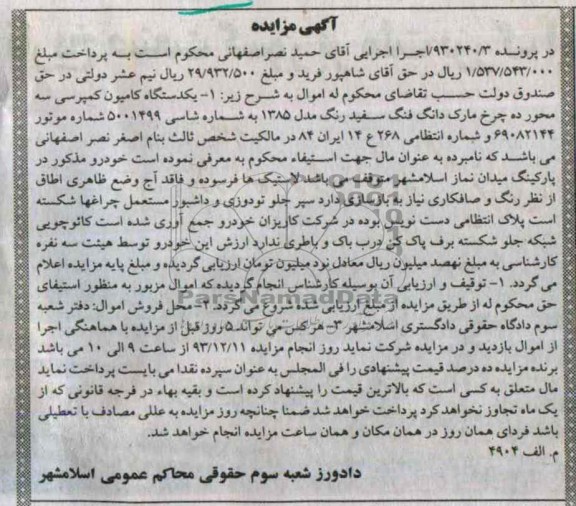 آگهی مزایده
در پرونده ۹۳۰۲۴۰/۳/اجرا اجرایی آقای حمید نصراصفهانی محکوم است به پرداخت مبلغ
۱/۵۳۷/۵۴۳/۰۰۰ ریال در حق آقای شاهپور فرید و مبلغ ۲۹/۹۳۲/۵۰۰ ریال نیم عشر دولتی در حق
صندوق دولت حسب تقاضای محکوم له اموال به شرح زیر: ۱- یکدستگاه کامیون کمپرسی سه
محور ده چرخ مارک دانگ فنگ سفید رنگ مدل ۱۳۸۵ به شماره شاسی ۵۰۰۱۴۹۹ شماره موتور
۶۹۰۸۲۱۴۴ و شماره انتظامی ۲۶۸ ع ۱۴ ایران ۸۴ در مالکیت شخص ثالث بنام اصغر نصر اصفهانی
می باشد که نامبرده به عنوان مال جهت استیفاء محکوم به معرفی نموده است خودرو مذکور در
پارکینگ میدان نماز اسلامشهر متوقف می باشد لاستیک ها فرسوده و فاقد آج وضع ظاهری اطاق
از نظر رنگ و صافکاری نیاز به بازسازی دارد سپر جلو تودوزی و داشبورد مستعمل چراغها شکسته
است پلاک انتظامی دست نویس بوده در شرکت کاریزان خودرو جمع آوری شده است کائوچویی
شبکه جلو شکسته برف پاک کن درب باک و باطری ندارد ارزش این خودرو توسط هیئت سه نفره
کارشناسی به مبلغ نهصد میلیون ریال معادل نود میلیون تومان ارزیابی گردیده و مبلغ پایه مزایده اعلام
می گردد. ۱- توقیف و ارزیابی آن بوسیله کارشناس انجام گردیده که اموال مزبور به منظور استیفای
حق محکوم له از طریق مزایده از مبلغ ارزیابی شده شروع می گردد. ۲- محل فروش اموال: دفتر شعبه
سوم دادگاه حقوقی دادگستری اسلامشهر ۳- هرکس می تواند ۵ روز قبل از مزایده با هماهنگی اجرا
از اموال بازدید و در مزایده شرکت نماید روز انجام مزایده ۹۳/۱۲/۱۱ از ساعت ۹ الی ۱۰ می باشد
برنده مزایده ده درصد قیمت پیشنهادی را فی المجلس به عنوان سپرده نقدا می بایست پرداخت نماید
مال متعلق به کسی است که بالاترین قیمت را پیشنهاد کرده است و بقیه بهاء در فرجه قانونی که از
یک ماه تجاوز نخواهد کرد پرداخت خواهد شد ضمنا چنانچه روز مزایده به عللی مصادف با تعطیلی
باشد فردای همان روز در همان مکان و همان ساعت مزایده انجام خواهد شد.
م. الف ۴۹۰۴
دادورز شعبه سوم حقوقی محاکم عمومی اسلامشهر
ParsNamadData